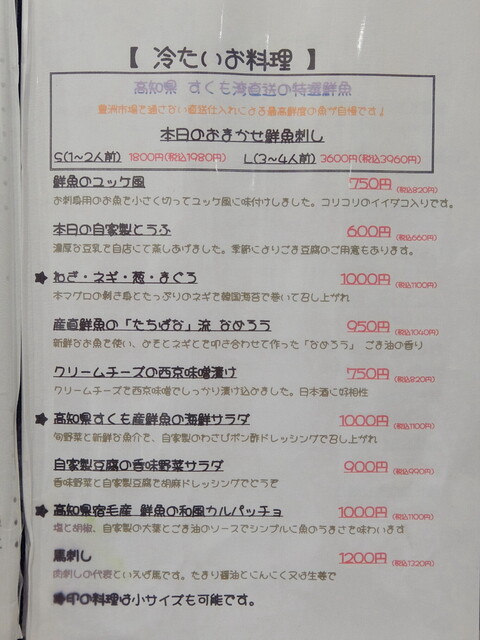 【 冷たいお料理 】
高知県 すくも湾直送の特選鮮魚
豊洲市場を通さない直送仕入れによる最高鮮度の魚が自慢です♪
本日のおまかせ鮮魚刺し
S(1～2人前) 1800円(税込1980円) L(3～4人前) 3600円(税込3960円)
鮮魚のユッケ風 750円 (税込820円)
お刺身用のお魚を小さく切ってユッケ風に味付けしました。コリコリのイイダコ入りです。
本日の自家製とうふ 600円 (税込660円)
濃厚な豆乳を自店にて蒸しあげました。季節によりごま豆腐のご用意もあります。
★ ねぎ・ネギ・葱・まぐろ 1000円 (税込1100円)
本マグロの剥き身とたっぷりのネギを韓国海苔で巻いて召し上がれ
産直鮮魚の「たちばな」流 なめろう 950円 (税込1040円)
新鮮なお魚を使い、みそとネギとで叩き合わせて作った「なめろう」 ごま油の香り
クリームチーズの西京味噌漬け 750円 (税込820円)
クリームチーズを西京味噌でしっかり漬け込みました。日本酒に好相性
★ 高知県すくも産鮮魚の海鮮サラダ 1000円 (税込1100円)
旬野菜と新鮮な魚介で、自家製のわさびポン酢ドレッシングで召し上がれ
自家製豆腐の香味野菜サラダ 900円 (税込990円)
香味野菜と自家製豆腐を胡麻ドレッシングでどうぞ
★ 高知県宿毛産 鮮魚の和風カルパッチョ 1000円 (税込1100円)
塩と胡椒、自家製の大葉とごま油のソースでシンプルに魚のうまさを味わいます
馬刺し 1200円 (税込1320円)
肉刺しの代表といえば馬です。たまり醤油とにんにく又は生姜で
★印の料理は小サイズも可能です。